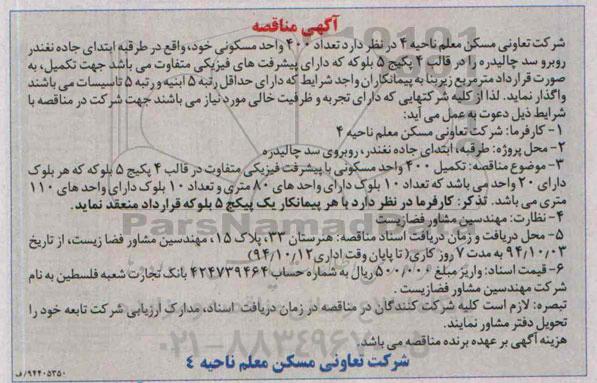 آگهی مناقصه
شرکت تعاونی مسکن معلم ناحیه ۴ در نظر دارد تعداد ۴۰۰ واحد مسکونی خود، واقع در طرقبه ابتدای جاده نغندر
روبرو سد چالیدره را در قالب ۴ پکیج ۵ بلوکه که دارای پیشرفت های فیزیکی متفاوت می باشد جهت تکمیل، به
صورت قرارداد مترمربع زیربنا به پیمانکاران واجد شرایط که دارای حداقل رتبه ۵ ابنیه و رتبه ۵ تاسیسات می باشند
واگذار نماید. لذا از کلیه شرکتهایی که دارای تجربه و ظرفیت خالی مورد نیاز می باشند جهت شرکت در مناقصه با
شرایط ذیل دعوت به عمل می آید:
۱- کارفرما: شرکت تعاونی مسکن معلم ناحیه ۴
۲- محل پروژه: طرقبه، ابتدای جاده نغندر، روبروی سد چالیدره
۳- موضوع مناقصه: تکمیل ۴۰۰ واحد مسکونی با پیشرفت فیزیکی متفاوت در قالب ۴ پکیج ۵ بلوکه که هر بلوک
دارای ۲۰ واحد می باشد که تعداد ۱۰ بلوک دارای واحد های ۸۰ متری و تعداد ۱۰ بلوک دارای واحد های ۱۱۰
متری می باشد. تذکر: کارفرما در نظر دارد با هر پیمانکار یک پیکج ۵ بلوکه قرارداد منعقد نماید.
۴- نظارت: مهندسین مشاور فضازیست
۵- محل دریافت و زمان دریافت اسناد مناقصه: هنرستان ۳۳، پلاک ۱۵، مهندسین مشاور فضا زیست، از تاریخ
۹۴/۱۰/۰۳ به مدت ۷ روز کاری( تا پایان وقت اداری ۹۴/۱۰/۱۲)
۶- قیمت اسناد: واریز مبلغ ۵۰۰/۰۰۰ ریال به شماره حساب ۴۲۴۷۳۹۴۶۴ بانک تجارت شعبه فلسطین به نام
شرکت مهندسین مشاور فضازیست.
تبصره: لازم است کلیه شرکت کنندگان در مناقصه در زمان دریافت اسناد، مدارک ارزیابی شرکت تابعه خود را
تحویل دفتر مشاور نمایند.
هزینه آگهی بر عهده برنده مناقصه می باشد.
شرکت تعاونی مسکن معلم ناحیه ٤
۹۴۴۰۵۳۵۰/ف
ParsNamadData
۰۲۱-۸۸۳۴۹۶۷۰